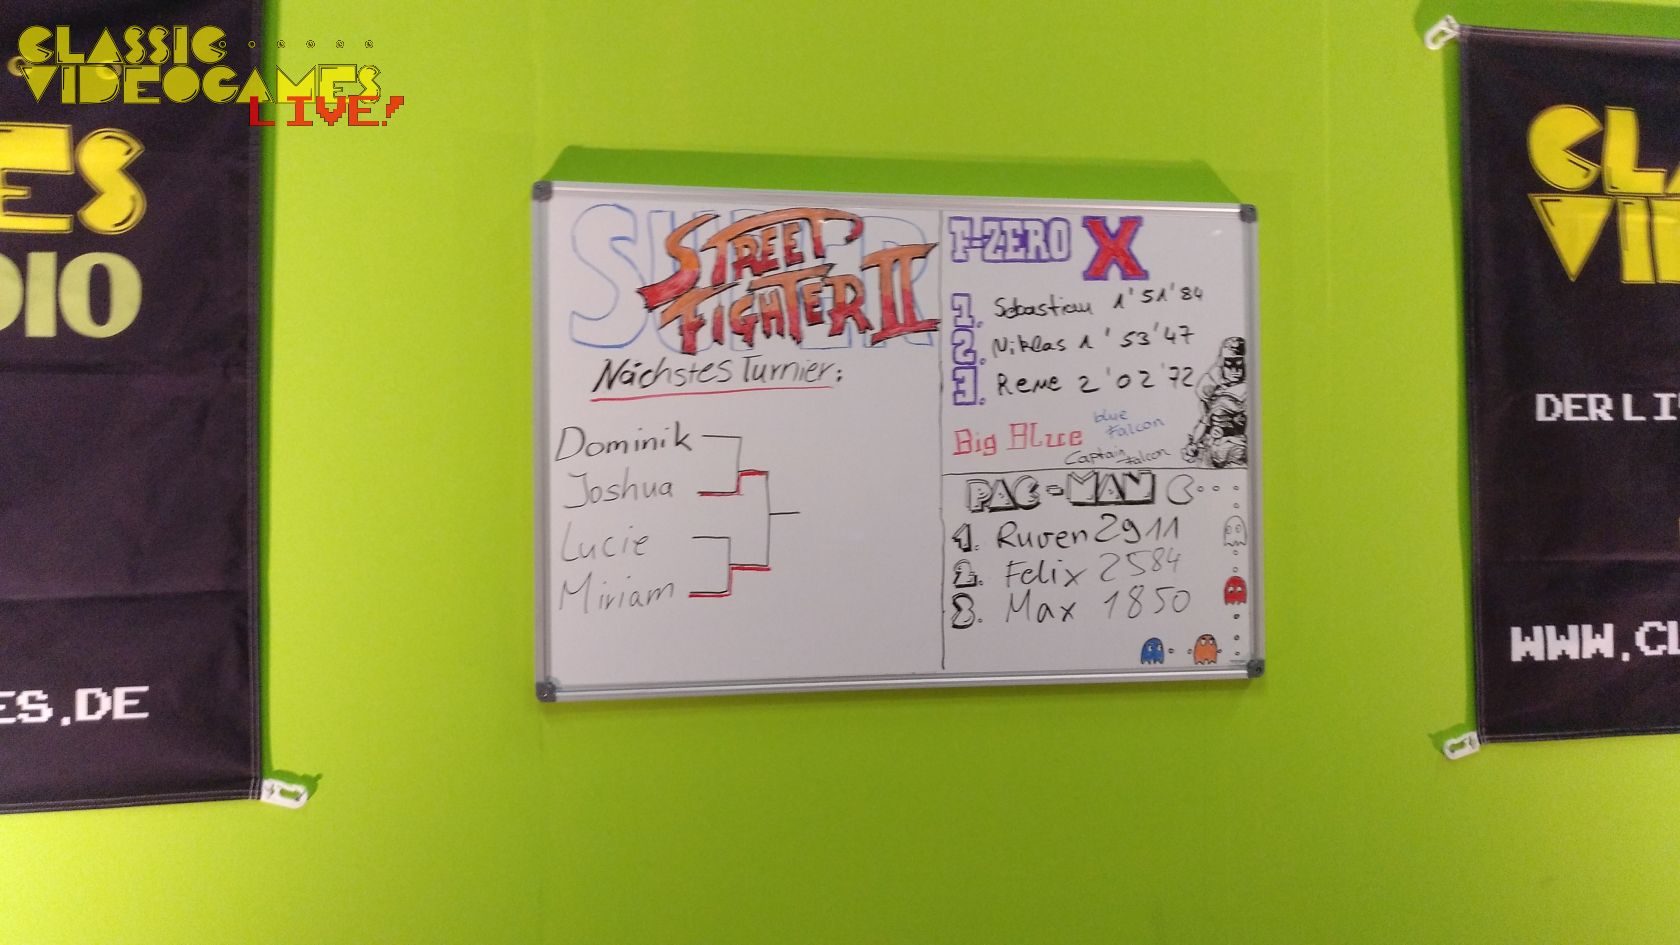 CLASSIC
VIDEOGAMES
LIVE!
ES
DIO
ES.DE
SUPER
STREET
FIGHTER II
Nächstes Turnier:
Dominik
Joshua
Lucie
Miriam
F-ZERO X
1. Sebastian 1'51'84
2. Niklas 1'53'47
3. Rene 2'02'72
Big Blue
blue
Falcon
Captain falcon
PAC-MAN
1. Ruven 2911
2. Felix 2584
3. Max 1850
CLA
VI
DER LI
WWW.CL